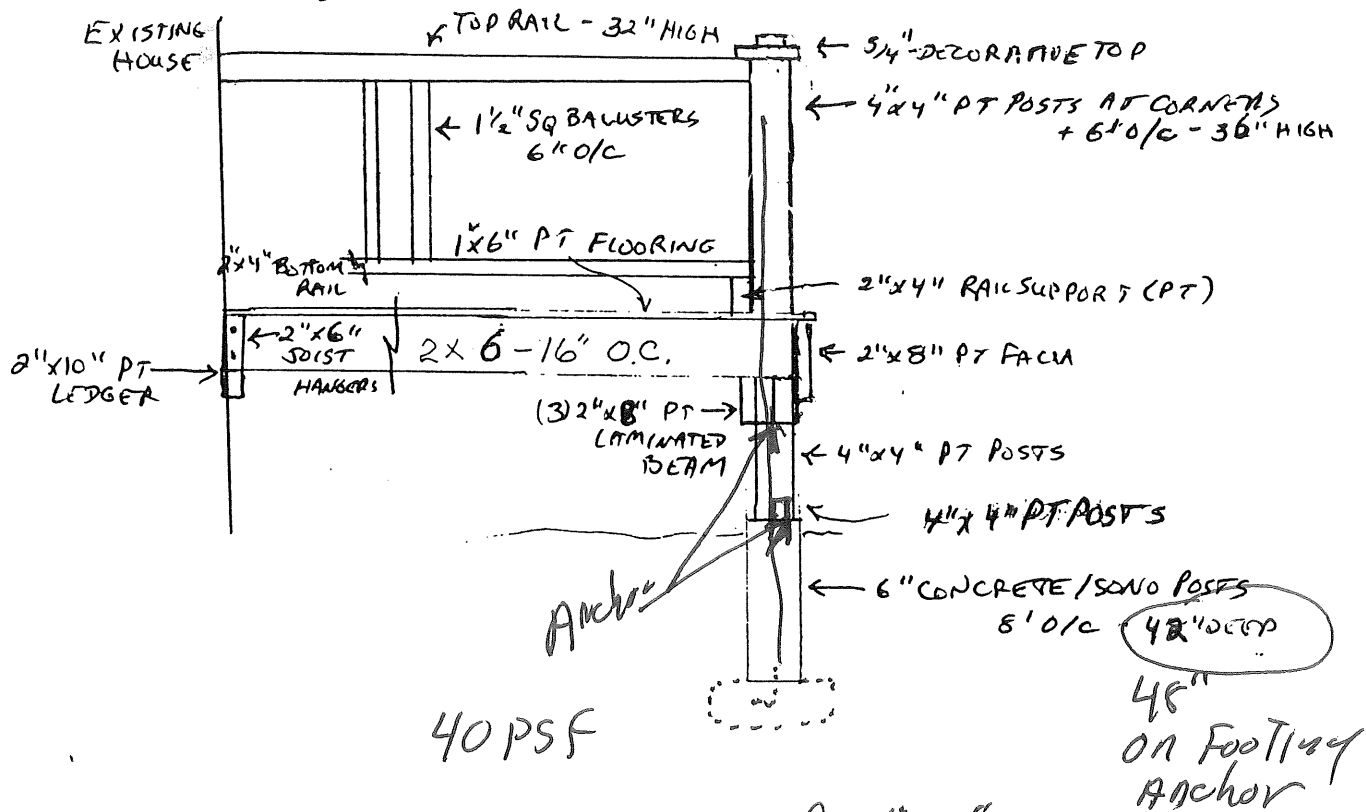 EXISTING
HOUSE
TOP RAIL - 32" HIGH
5/4" DECORATIVE TOP
4"x4" PT POSTS AT CORNERS
+ 6' O/C - 36" HIGH
1 1/2" SQ BALUSTERS
6" O/C
1"x6" PT FLOORING
2"x4" BOTTOM
RAIL
2"x4" RAIL SUPPORT (PT)
2"x6"
JOIST
HANGERS
2 x 6 - 16" O.C.
2"x8" PT FACIA
2"x10" PT
LEDGER
(3) 2"x8" PT
LAMINATED
BEAM
4"x4" PT POSTS
4"x4" PT POSTS
Anchor
6" CONCRETE/SONO POSTS
8' O/C 42" DEEP
48"
on Footing
Anchor
40 PSF